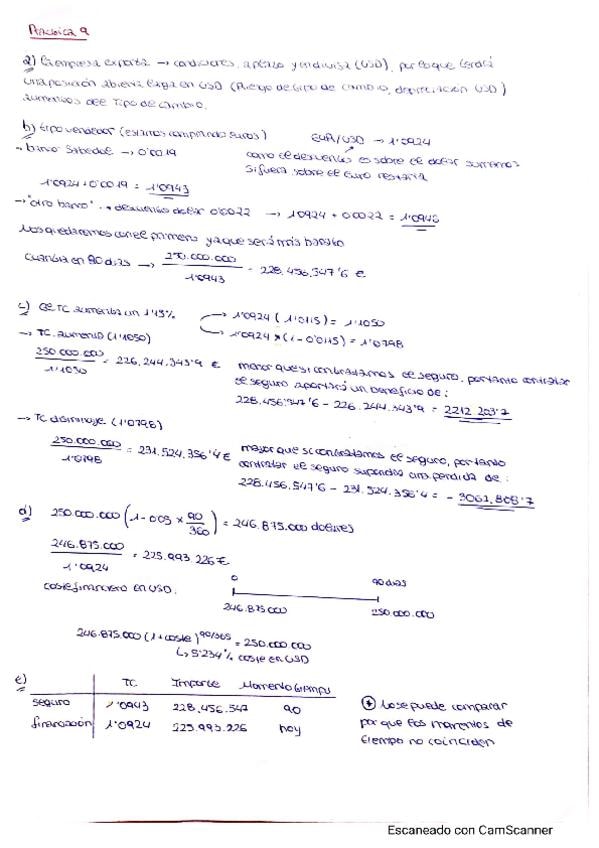 Práctica 9
a) La empresa exporta → condiciones, aplazo y en divisa (USD), por lo que tendrá
una posición abierta larga en USD (Riesgo de tipo de cambio, depreciación USD)
aumentos del Tipo de cambio.
b) tipo vendedor (estamos comprando euros) EUR/USD → 1'0924
→ banco Sabadell → 0'0019 como el descuento es sobre el dolar sumamos
si fuera sobre el Euro restaría
1'0924 + 0'0019 = 1'0943
→ "otro banco" → descuento dolar 0'0022 → 1'0924 + 0'0022 = 1'0946
Nos quedaremos con el primero ya que será más barato
Cuantía en 90 días → 250.000.000 / 1'0943 = 228.456.547'6 €
c) El TC aumenta un 1'15% → 1'0924 (1'0115) = 1'1050
→ 1'0924 × (1 - 0'0115) = 1'0798
→ TC aumenta (1'1050)
250.000.000 / 1'1050 = 226.244.343'9 € menor que si contratamos el seguro, por tanto contratar
el seguro aportará un beneficio de:
228.456.547'6 - 226.244.343'9 = 2212 203'7
→ TC disminuye (1'0798)
250.000.000 / 1'0798 = 231.524.356'4 € mayor que si contratamos el seguro, por tanto
contratar el seguro supondría una perdida de:
228.456.547'6 - 231.524.356'4 = - 3067.808'7
d) 250.000.000 (1 - 0'05 × 90/360) = 246.875.000 dolares
246.875.000 / 1'0924 = 225.993.226 €
coste financiero en USD. 0 90 dias
246.875.000 250.000.000
246.875.000 (1 + coste)^90/365 = 250.000.000
↳ 5'234% coste en USD
e) TC Importe Momento tiempo
seguro 1'0943 228.456.547 90
financiación 1'0924 225.993.226 hoy
* No se puede comparar
porque los momentos de
tiempo no coinciden
Escaneado con CamScanner